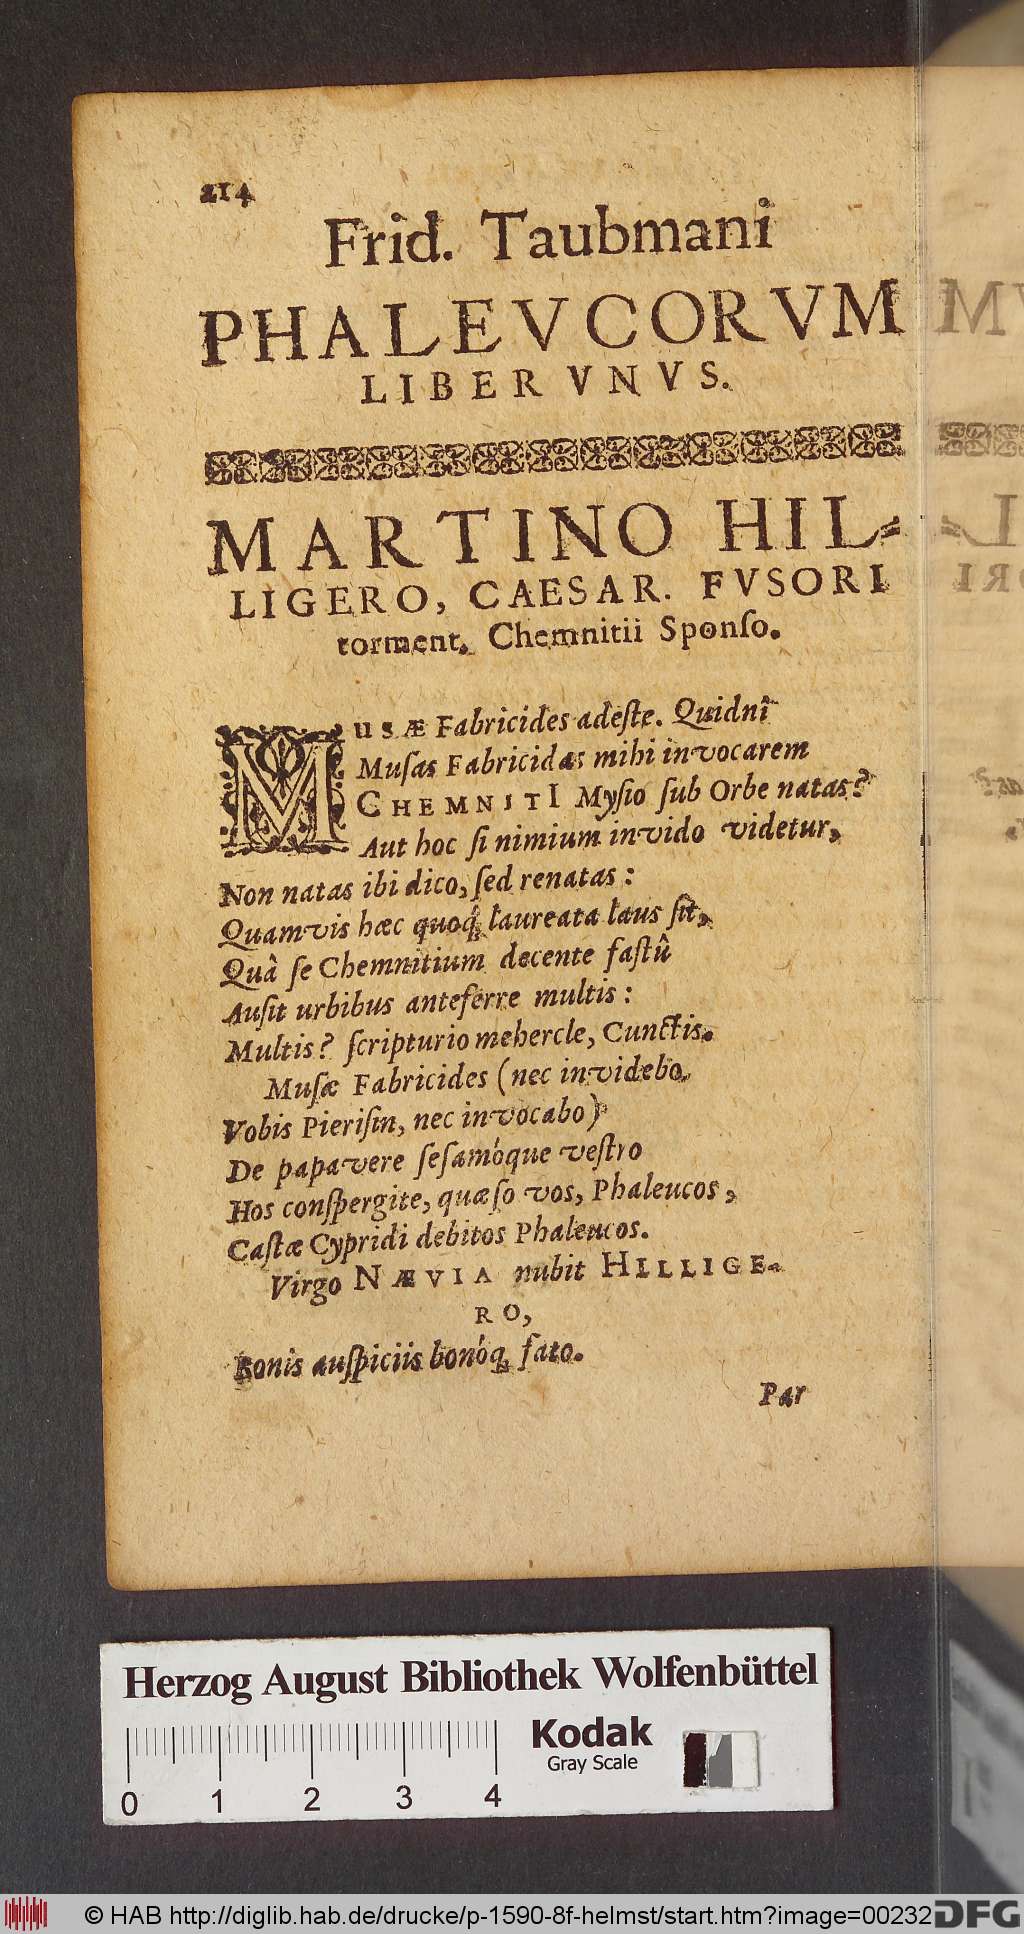 214
Frid. Taubmani
PHALEVCORVM
LIBER VNVS.
MARTINO HIL-
LIGERO, CAESAR. FVSORI
torment. Chemnitii Sponſo.
MUSÆ Fabricides adeſte. Quidnî
Muſas Fabricidas mihi invocarem
CHEMNITI Myſio ſub Orbe natas?
Aut hoc ſi nimium invido videtur,
Non natas ibi dico, ſed renatas:
Quamvis hæc quoq́; laureata laus ſit,
Quâ ſe Chemnitium decente faſtû
Auſit urbibus anteferre multis:
Multis? ſcripturio mehercle, Cunctis.
Muſæ Fabricides (nec invidebo,
Vobis Pieriſin, nec invocabo)
De papavere ſeſamóque veſtro
Hos conſpergite, quæſo vos, Phaleucos,
Caſtæ Cypridi debitos Phaleucos.
Virgo NÆVIA nubit HILLIGE-
RO,
Bonis auſpiciis bonóq; fato.
Par
Herzog August Bibliothek Wolfenbüttel
Kodak
Gray Scale
0 1 2 3 4
© HAB http://diglib.hab.de/drucke/p-1590-8f-helmst/start.htm?image=00232
DFG